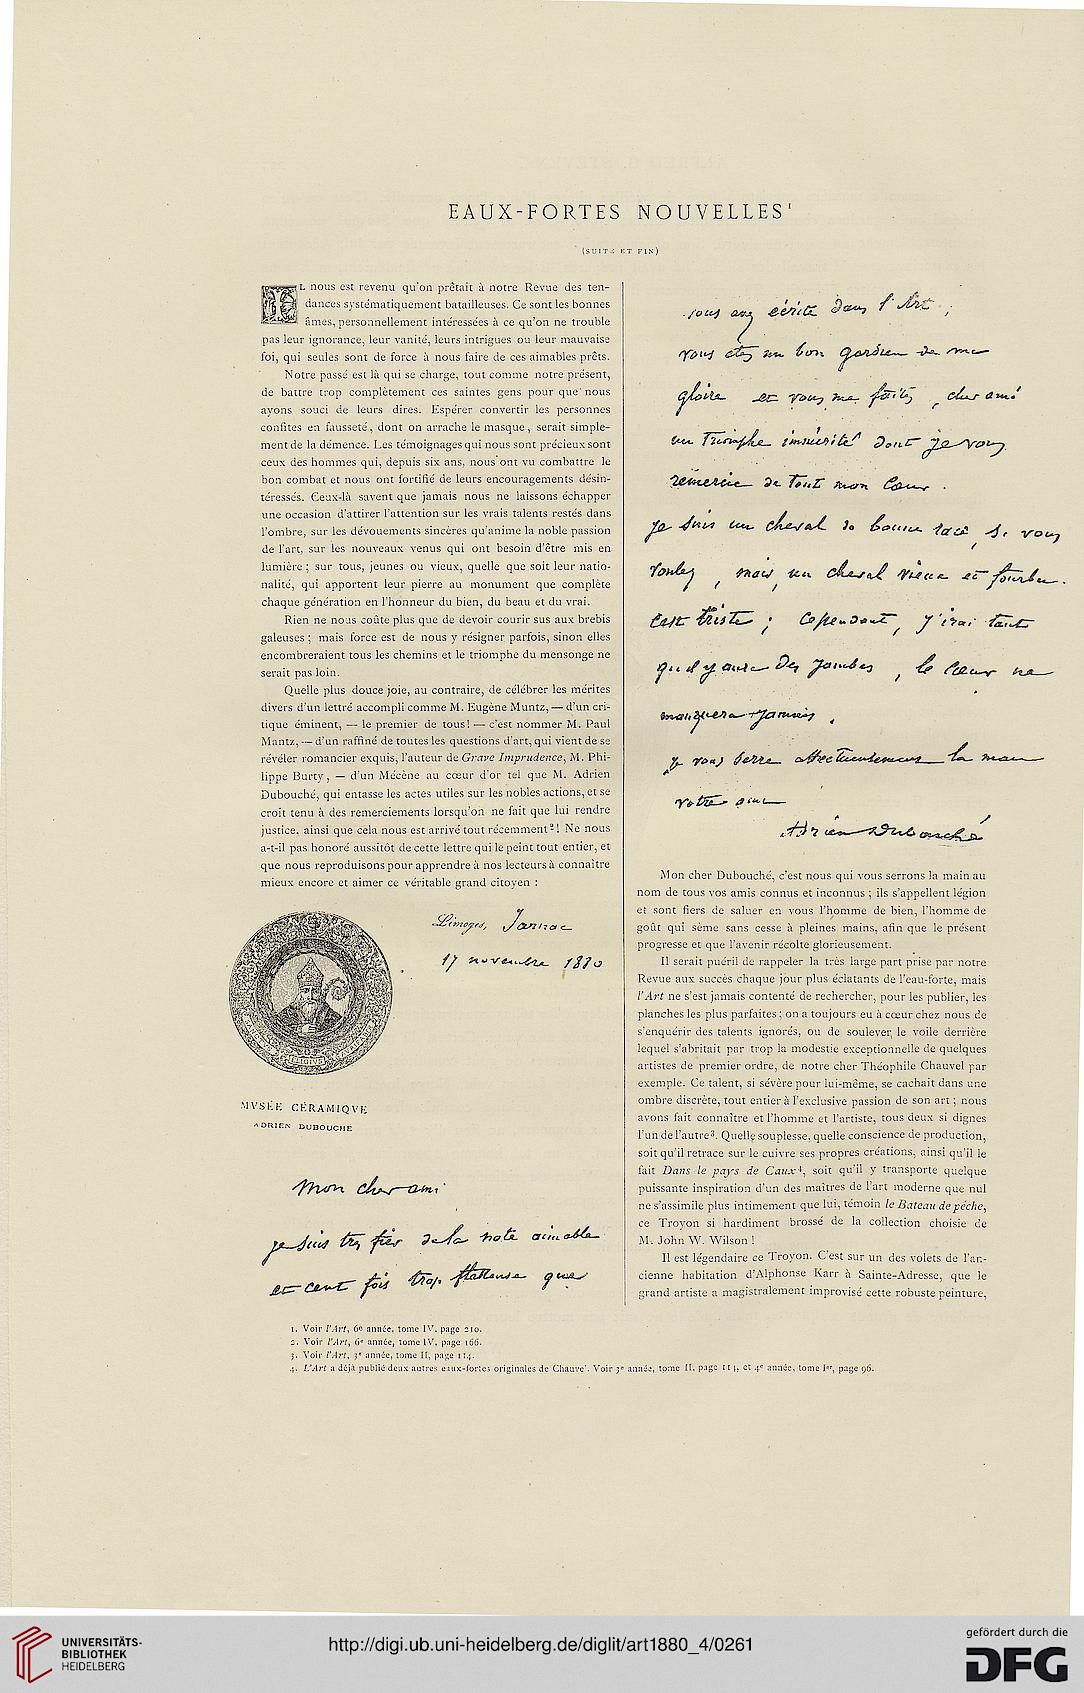 EAUX-FORTES NOUVELLES¹
(SUITE ET FIN)
IL nous est revenu qu'on prêtait à notre Revue des ten-
dances systématiquement batailleuses. Ce sont les bonnes
âmes, personnellement intéressées à ce qu'on ne trouble
pas leur ignorance, leur vanité, leurs intrigues ou leur mauvaise
foi, qui seules sont de force à nous faire de ces aimables prêts.
Notre passé est là qui se charge, tout comme notre présent,
de battre trop complètement ces saintes gens pour que nous
ayons souci de leurs dires. Espérer convertir les personnes
confites en fausseté, dont on arrache le masque, serait simple-
ment de la démence. Les témoignages qui nous sont précieux sont
ceux des hommes qui, depuis six ans, nous ont vu combattre le
bon combat et nous ont fortifié de leurs encouragements désin-
téressés. Ceux-là savent que jamais nous ne laissons échapper
une occasion d'attirer l'attention sur les vrais talents restés dans
l'ombre, sur les dévouements sincères qu'anime la noble passion
de l'art, sur les nouveaux venus qui ont besoin d'être mis en
lumière ; sur tous, jeunes ou vieux, quelle que soit leur natio-
nalité, qui apportent leur pierre au monument que complète
chaque génération en l'honneur du bien, du beau et du vrai.
Rien ne nous coûte plus que de devoir courir sus aux brebis
galeuses ; mais force est de nous y résigner parfois, sinon elles
encombreraient tous les chemins et le triomphe du mensonge ne
serait pas loin.
Quelle plus douce joie, au contraire, de célébrer les mérites
divers d'un lettré accompli comme M. Eugène Muntz, — d'un cri-
tique éminent, — le premier de tous! — c'est nommer M. Paul
Mantz, — d'un raffiné de toutes les questions d'art, qui vient de se
révéler romancier exquis, l'auteur de Grave Imprudence, M. Phi-
lippe Burty, — d'un Mécène au cœur d'or tel que M. Adrien
Dubouché, qui entasse les actes utiles sur les nobles actions, et se
croit tenu à des remerciements lorsqu'on ne fait que lui rendre
justice, ainsi que cela nous est arrivé tout récemment²! Ne nous
a-t-il pas honoré aussitôt de cette lettre qui le peint tout entier, et
que nous reproduisons pour apprendre à nos lecteurs à connaître
mieux encore et aimer ce véritable grand citoyen :
Limoges, Jarnac
17 novembre 1880
ELIGIVS
MVSÉE CÉRAMIQVE
ADRIEN DUBOUCHÉ
Mon cher ami
je suis très fier de la note aimable
et cent fois trop flatteuse que
vous avez écrite dans l'Art ;
vous êtes un bon gardien de ma
gloire et vous me faites, cher ami
un triomphe immérité dont je vous
remercie de tout mon cœur.
je suis un cheval de bonne race, si vous
voulez, mais, un cheval vieux et fourbu.
c'est triste ; cependant, j'irai tant
qu'il y aura des jambes, le cœur ne
manquera jamais.
je vous serre affectueusement la main
votre ami
Adrien Dubouché
Mon cher Dubouché, c'est nous qui vous serrons la main au
nom de tous vos amis connus et inconnus ; ils s'appellent légion
et sont fiers de saluer en vous l'homme de bien, l'homme de
goût qui sème sans cesse à pleines mains, afin que le présent
progresse et que l'avenir récolte glorieusement.
Il serait puéril de rappeler la très large part prise par notre
Revue aux succès chaque jour plus éclatants de l'eau-forte, mais
l'Art ne s'est jamais contenté de rechercher, pour les publier, les
planches les plus parfaites ; on a toujours eu à cœur chez nous de
s'enquérir des talents ignorés, ou de soulever le voile derrière
lequel s'abritait par trop la modestie exceptionnelle de quelques
artistes de premier ordre, de notre cher Théophile Chauvel par
exemple. Ce talent, si sévère pour lui-même, se cachait dans une
ombre discrète, tout entier à l'exclusive passion de son art ; nous
avons fait connaître et l'homme et l'artiste, tous deux si dignes
l'un de l'autre³. Quelle souplesse, quelle conscience de production,
soit qu'il retrace sur le cuivre ses propres créations, ainsi qu'il le
fait Dans le pays de Caux⁴, soit qu'il y transporte quelque
puissante inspiration d'un des maîtres de l'art moderne que nul
ne s'assimile plus intimement que lui, témoin le Bateau de pêche,
ce Troyon si hardiment brossé de la collection choisie de
M. John W. Wilson !
Il est légendaire ce Troyon. C'est sur un des volets de l'an-
cienne habitation d'Alphonse Karr à Sainte-Adresse, que le
grand artiste a magistralement improvisé cette robuste peinture,
1. Voir l'Art, 6e année, tome IV, page 210.
2. Voir l'Art, 6e année, tome IV, page 166.
3. Voir l'Art, 3e année, tome II, page 114.
4. L'Art a déjà publié deux autres eaux-fortes originales de Chauvel. Voir 3e année, tome II, page 114, et 4e année, tome Ier, page 96.
UNIVERSITÄTS-
BIBLIOTHEK
HEIDELBERG
http://digi.ub.uni-heidelberg.de/diglit/art1880_4/0261
gefördert durch die
DFG